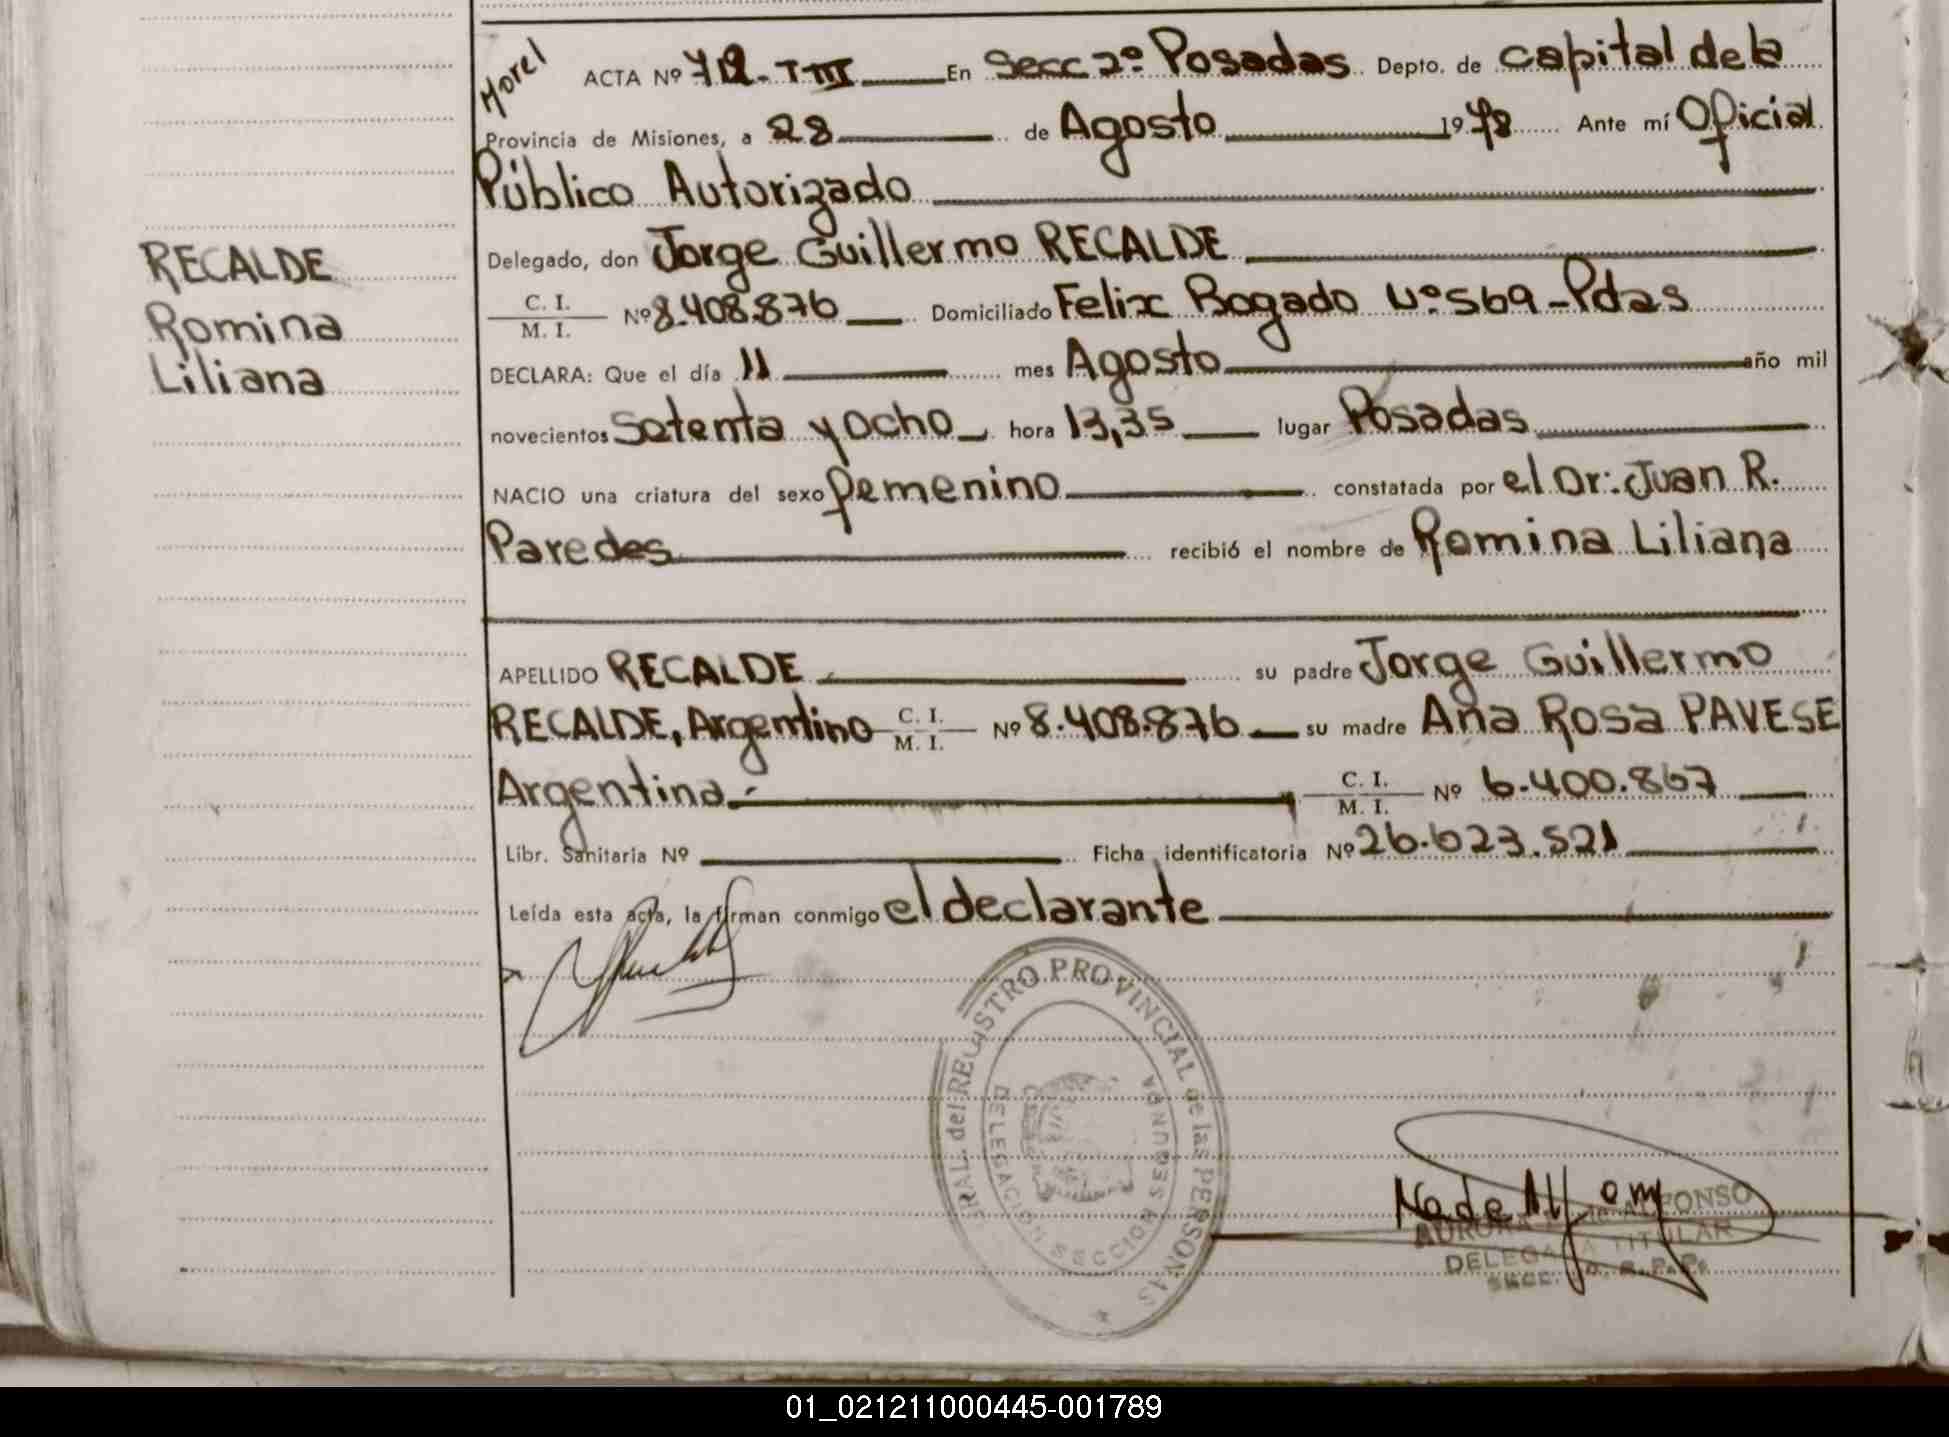 Morel
ACTA Nº 712 - T III En Secc 2º Posadas Depto. de Capital de la
Provincia de Misiones, a 28 de Agosto 1978 Ante mí Oficial
Público Autorizado
Delegado, don Jorge Guillermo RECALDE
RECALDE
Romina
Liliana
C. I.
M. I. Nº 8.408.876 Domiciliado Felix Bogado Nº 569 - Pdas
DECLARA: Que el día 11 mes Agosto año mil
novecientos Setenta y ocho hora 13,35 lugar Posadas
NACIO una criatura del sexo femenino constatada por el Dr: Juan R.
Paredes recibió el nombre de Romina Liliana
APELLIDO RECALDE su padre Jorge Guillermo
RECALDE, Argentino C. I. M. I. Nº 8.408.876 su madre Ana Rosa PAVESE
Argentina C. I. M. I. Nº 6.400.867
Libr. Sanitaria Nº Ficha identificatoria Nº 26.623.521
Leída esta acta, la firman conmigo el declarante
RAL. del REGISTRO PROVINCIAL de las PERSONAS
DELEGACION SECCION SEGUNDA
ALFONSO
DELEGADA TITULAR
01_021211000445-001789